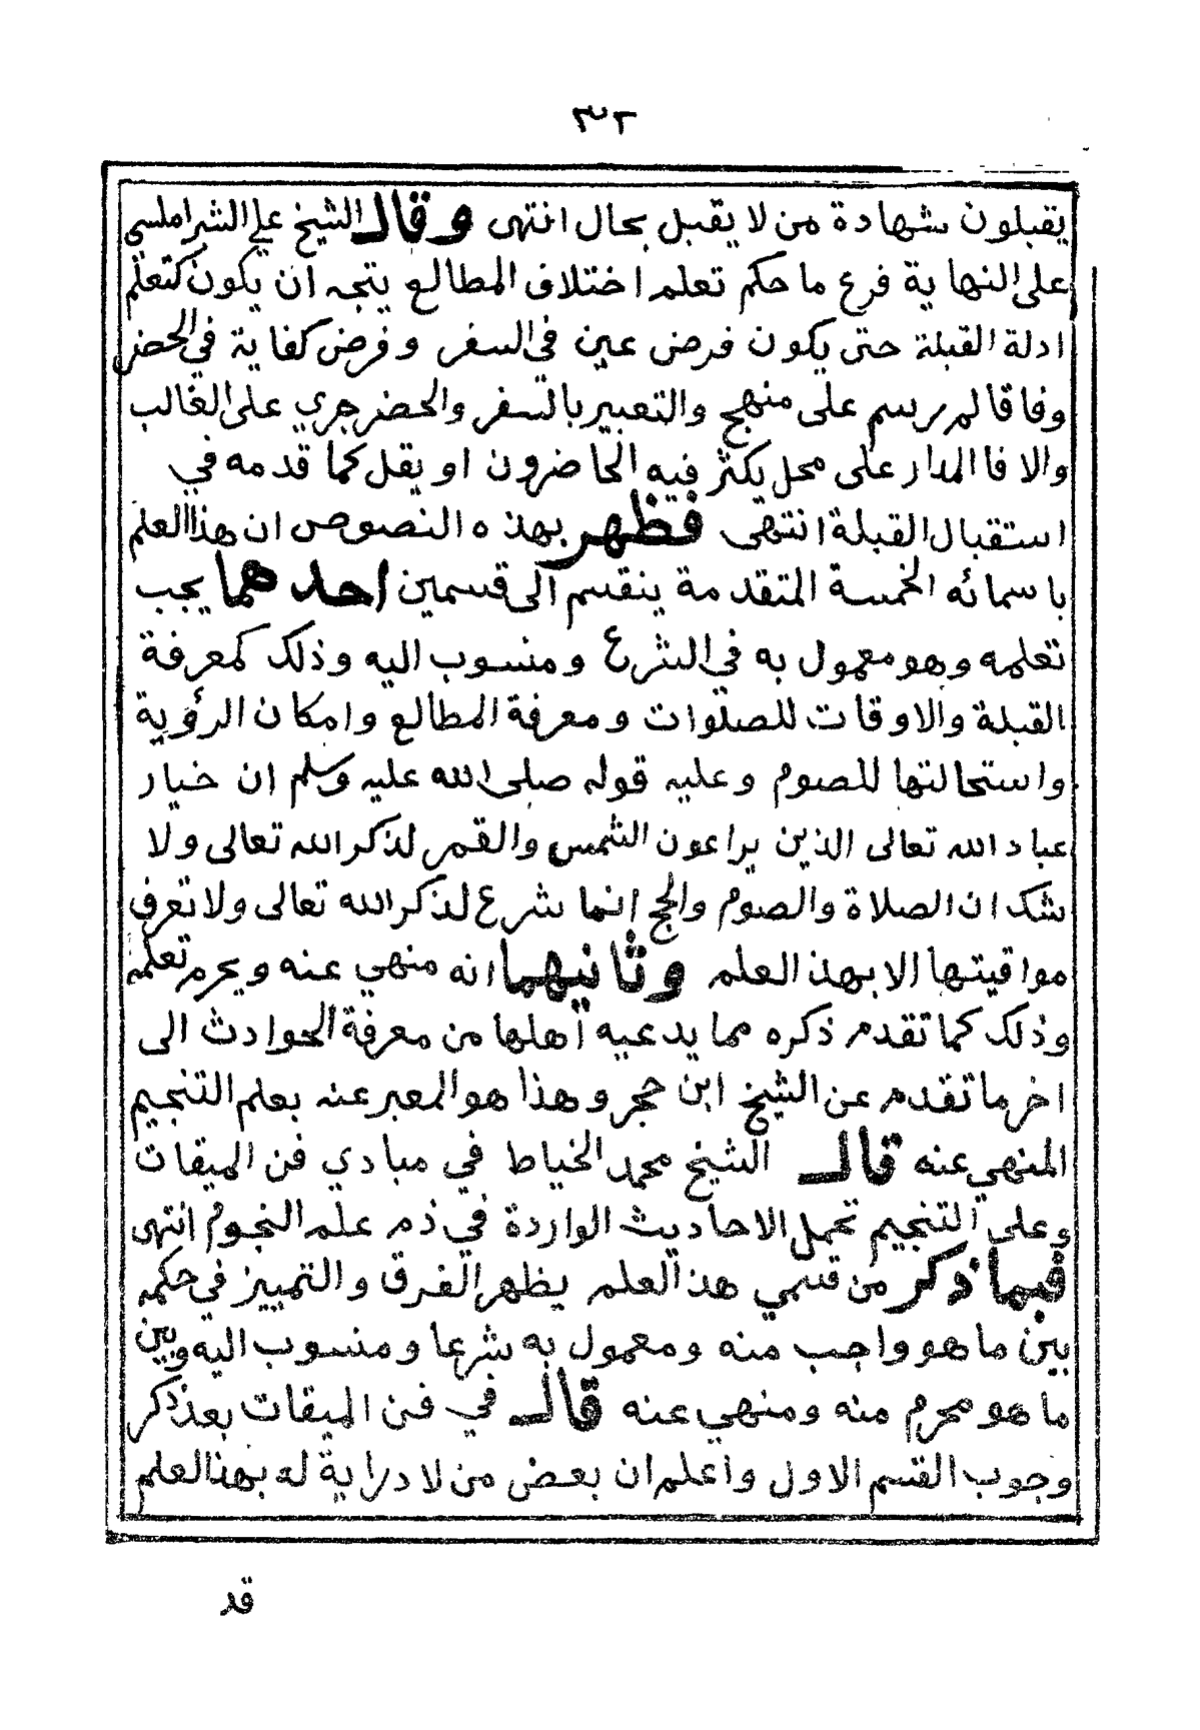 ٣٢
يقبلون شهادة من لا يقبل بحال انتهى وقال الشيخ علي الشبراملسى
على النهاية فرع ما حكم تعلم اختلاف المطالع يتجه ان يكون كتعلم
ادلة القبلة حتى يكون فرض عين في السفر وفرض كفاية في الحضر
وفاقا لم ر سم على منهج والتعبير بالسفر والحضر جري على الغالب
والا فالمدار على محل يكثر فيه الحاضرون او يقل كما قدمه في
استقبال القبلة انتهى فظهر بهذه النصوص ان هذا العلم
باسمائه الخمسة المتقدمة ينقسم الى قسمين احدهما يجب
تعلمه وهو معمول به في الشرع ومنسوب اليه وذلك كمعرفة
القبلة والاوقات للصلوات ومعرفة المطالع وامكان الرؤية
واستحالتها للصوم وعليه قوله صلى الله عليه وسلم ان خيار
عباد الله تعالى الذين يراعون الشمس والقمر لذكر الله تعالى ولا
شك ان الصلاة والصوم والحج انما شرع لذكر الله تعالى ولا تعرف
مواقيتها الا بهذ العلم وثانيهما انه منهي عنه ويحرم تعلمه
وذلك كما تقدم ذكره مما يدعيه أهلها من معرفة الحوادث الى
اخر ما تقدم عن الشيخ ابن حجر وهذا هو المعبر عنه بعلم التنجيم
المنهي عنه قال الشيخ محمد الخياط في مبادي فن الميقات
وعلى التنجيم تحمل الاحاديث الواردة في ذم علم النجوم انتهى
فبما ذكر من قسمي هذ العلم يظهر الفرق والتمييز في حكمه
بين ما هو واجب منه ومعمول به شرعا ومنسوب اليه وبين
ما هو محرم منه ومنهي عنه قال في فن الميقات بعد ذكر
وجوب القسم الاول وأعلم ان بعض من لا دراية له بهذ العلم
قد